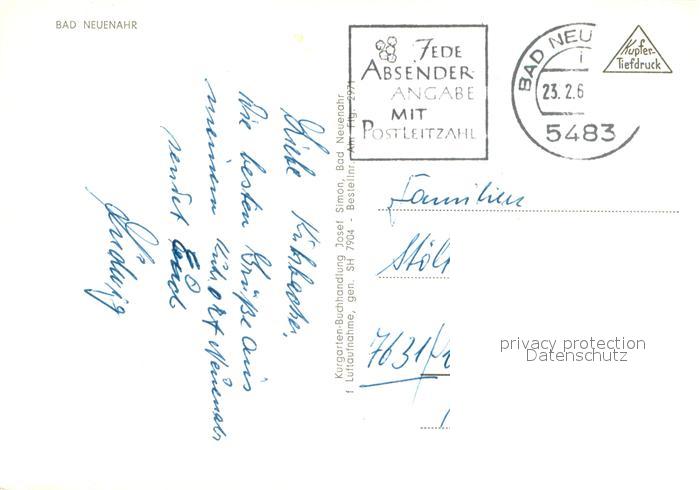 BAD NEUENAHR
JEDE
ABSENDER-
ANGABE
MIT
POSTLEITZAHL
BAD NEU
i
23.2.6
5483
Kupfer-
Tiefdruck
Liebe
die besten Grüße aus
meinem Kurort Neuenahr
sendet Euch
Ludwig
Kurgarten-Buchhandlung Josef Simon, Bad Neuenahr
Luftaufnahme, gen. SH 7904 - Bestellnr. Am Ftg. 2971
Familien
Stöl
7631
privacy protection
Datenschutz